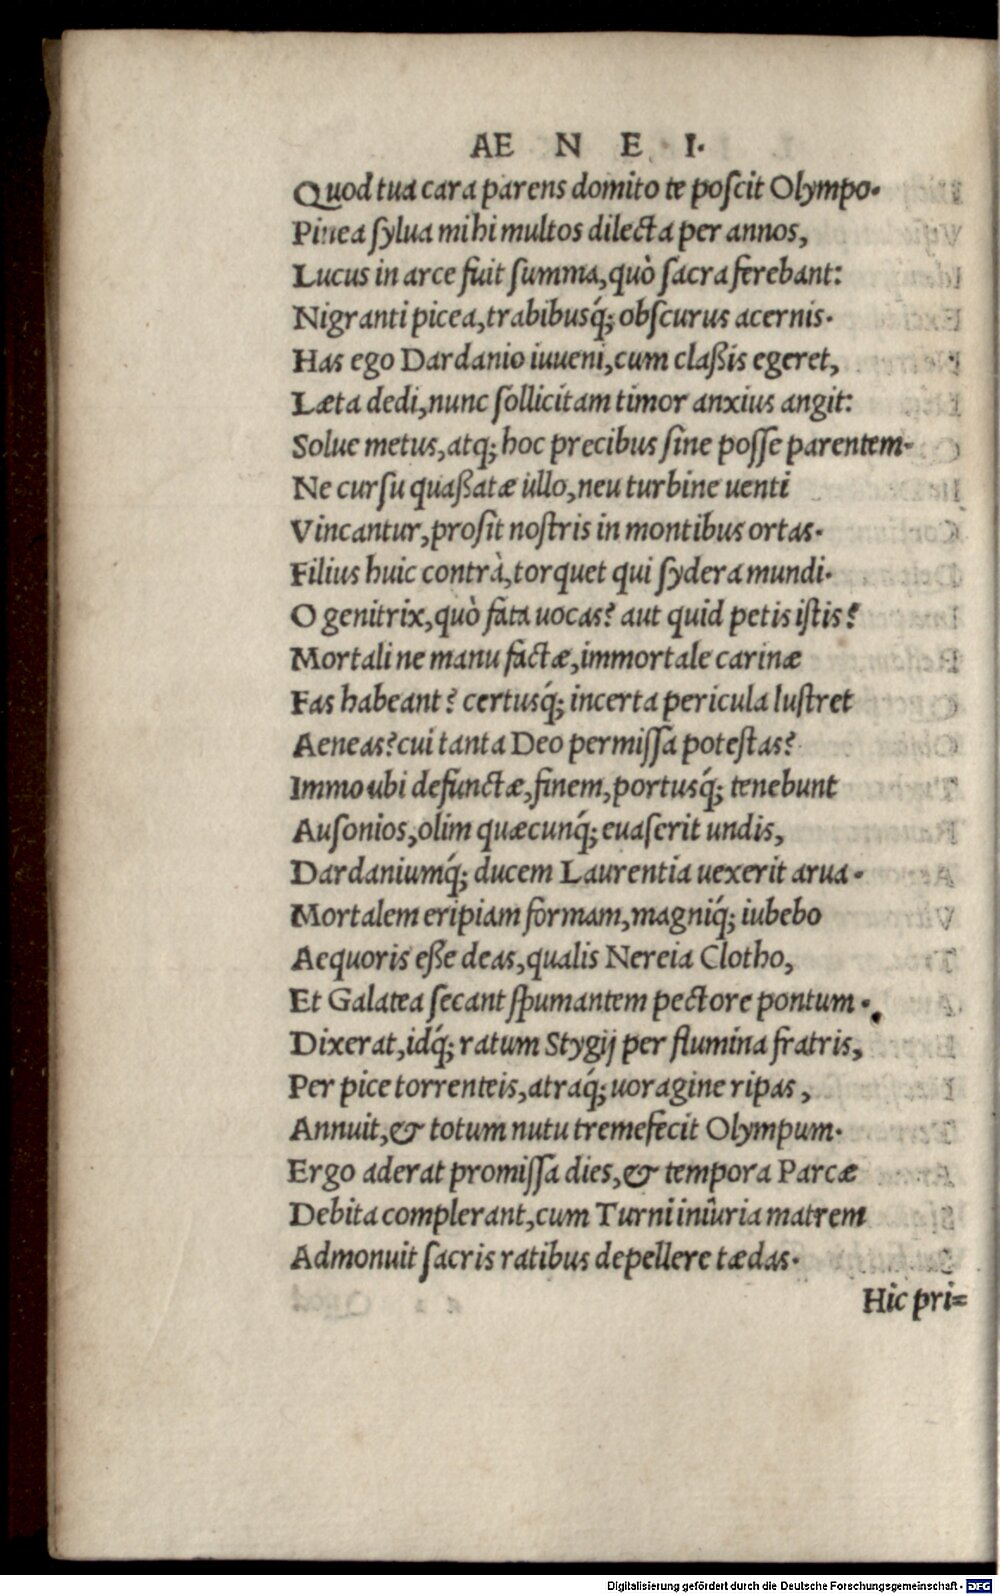 AE N E I.
Quod tua cara parens domito te poſcit Olympo.
Pinea ſylua mihi multos dilecta per annos,
Lucus in arce fuit ſumma, quò ſacra ferebant:
Nigranti picea, trabibusq́; obſcurus acernis.
Has ego Dardanio iuueni, cum claßis egeret,
Læta dedi, nunc ſollicitam timor anxius angit:
Solue metus, atq; hoc precibus ſine poſſe parentem.
Ne curſu quaßatæ ullo, neu turbine uenti
Vincantur, proſit noſtris in montibus ortas.
Filius huic contrà, torquet qui ſydera mundi.
O genitrix, quò fata uocas? aut quid petis iſtis?
Mortali ne manu factæ, immortale carinæ
Fas habeant? certusq́; incerta pericula luſtret
Aeneas? cui tanta Deo permiſſa poteſtas?
Immo ubi defunctæ, finem, portusq́; tenebunt
Auſonios, olim quæcunq́; euaſerit undis,
Dardaniumq́; ducem Laurentia uexerit arua.
Mortalem eripiam formam, magniq́; iubebo
Aequoris eße deas, qualis Nereia Clotho,
Et Galatea ſecant ſpumantem pectore pontum.
Dixerat, idq́; ratum Stygij per flumina fratris,
Per pice torrenteis, atraq́; uoragine ripas,
Annuit, & totum nutu tremefecit Olympum.
Ergo aderat promiſſa dies, & tempora Parcæ
Debita complerant, cum Turni iniûria matrem
Admonuit ſacris ratibus depellere tædas.
Hic pri=
Digitalisierung gefördert durch die Deutsche Forschungsgemeinschaft - DFG